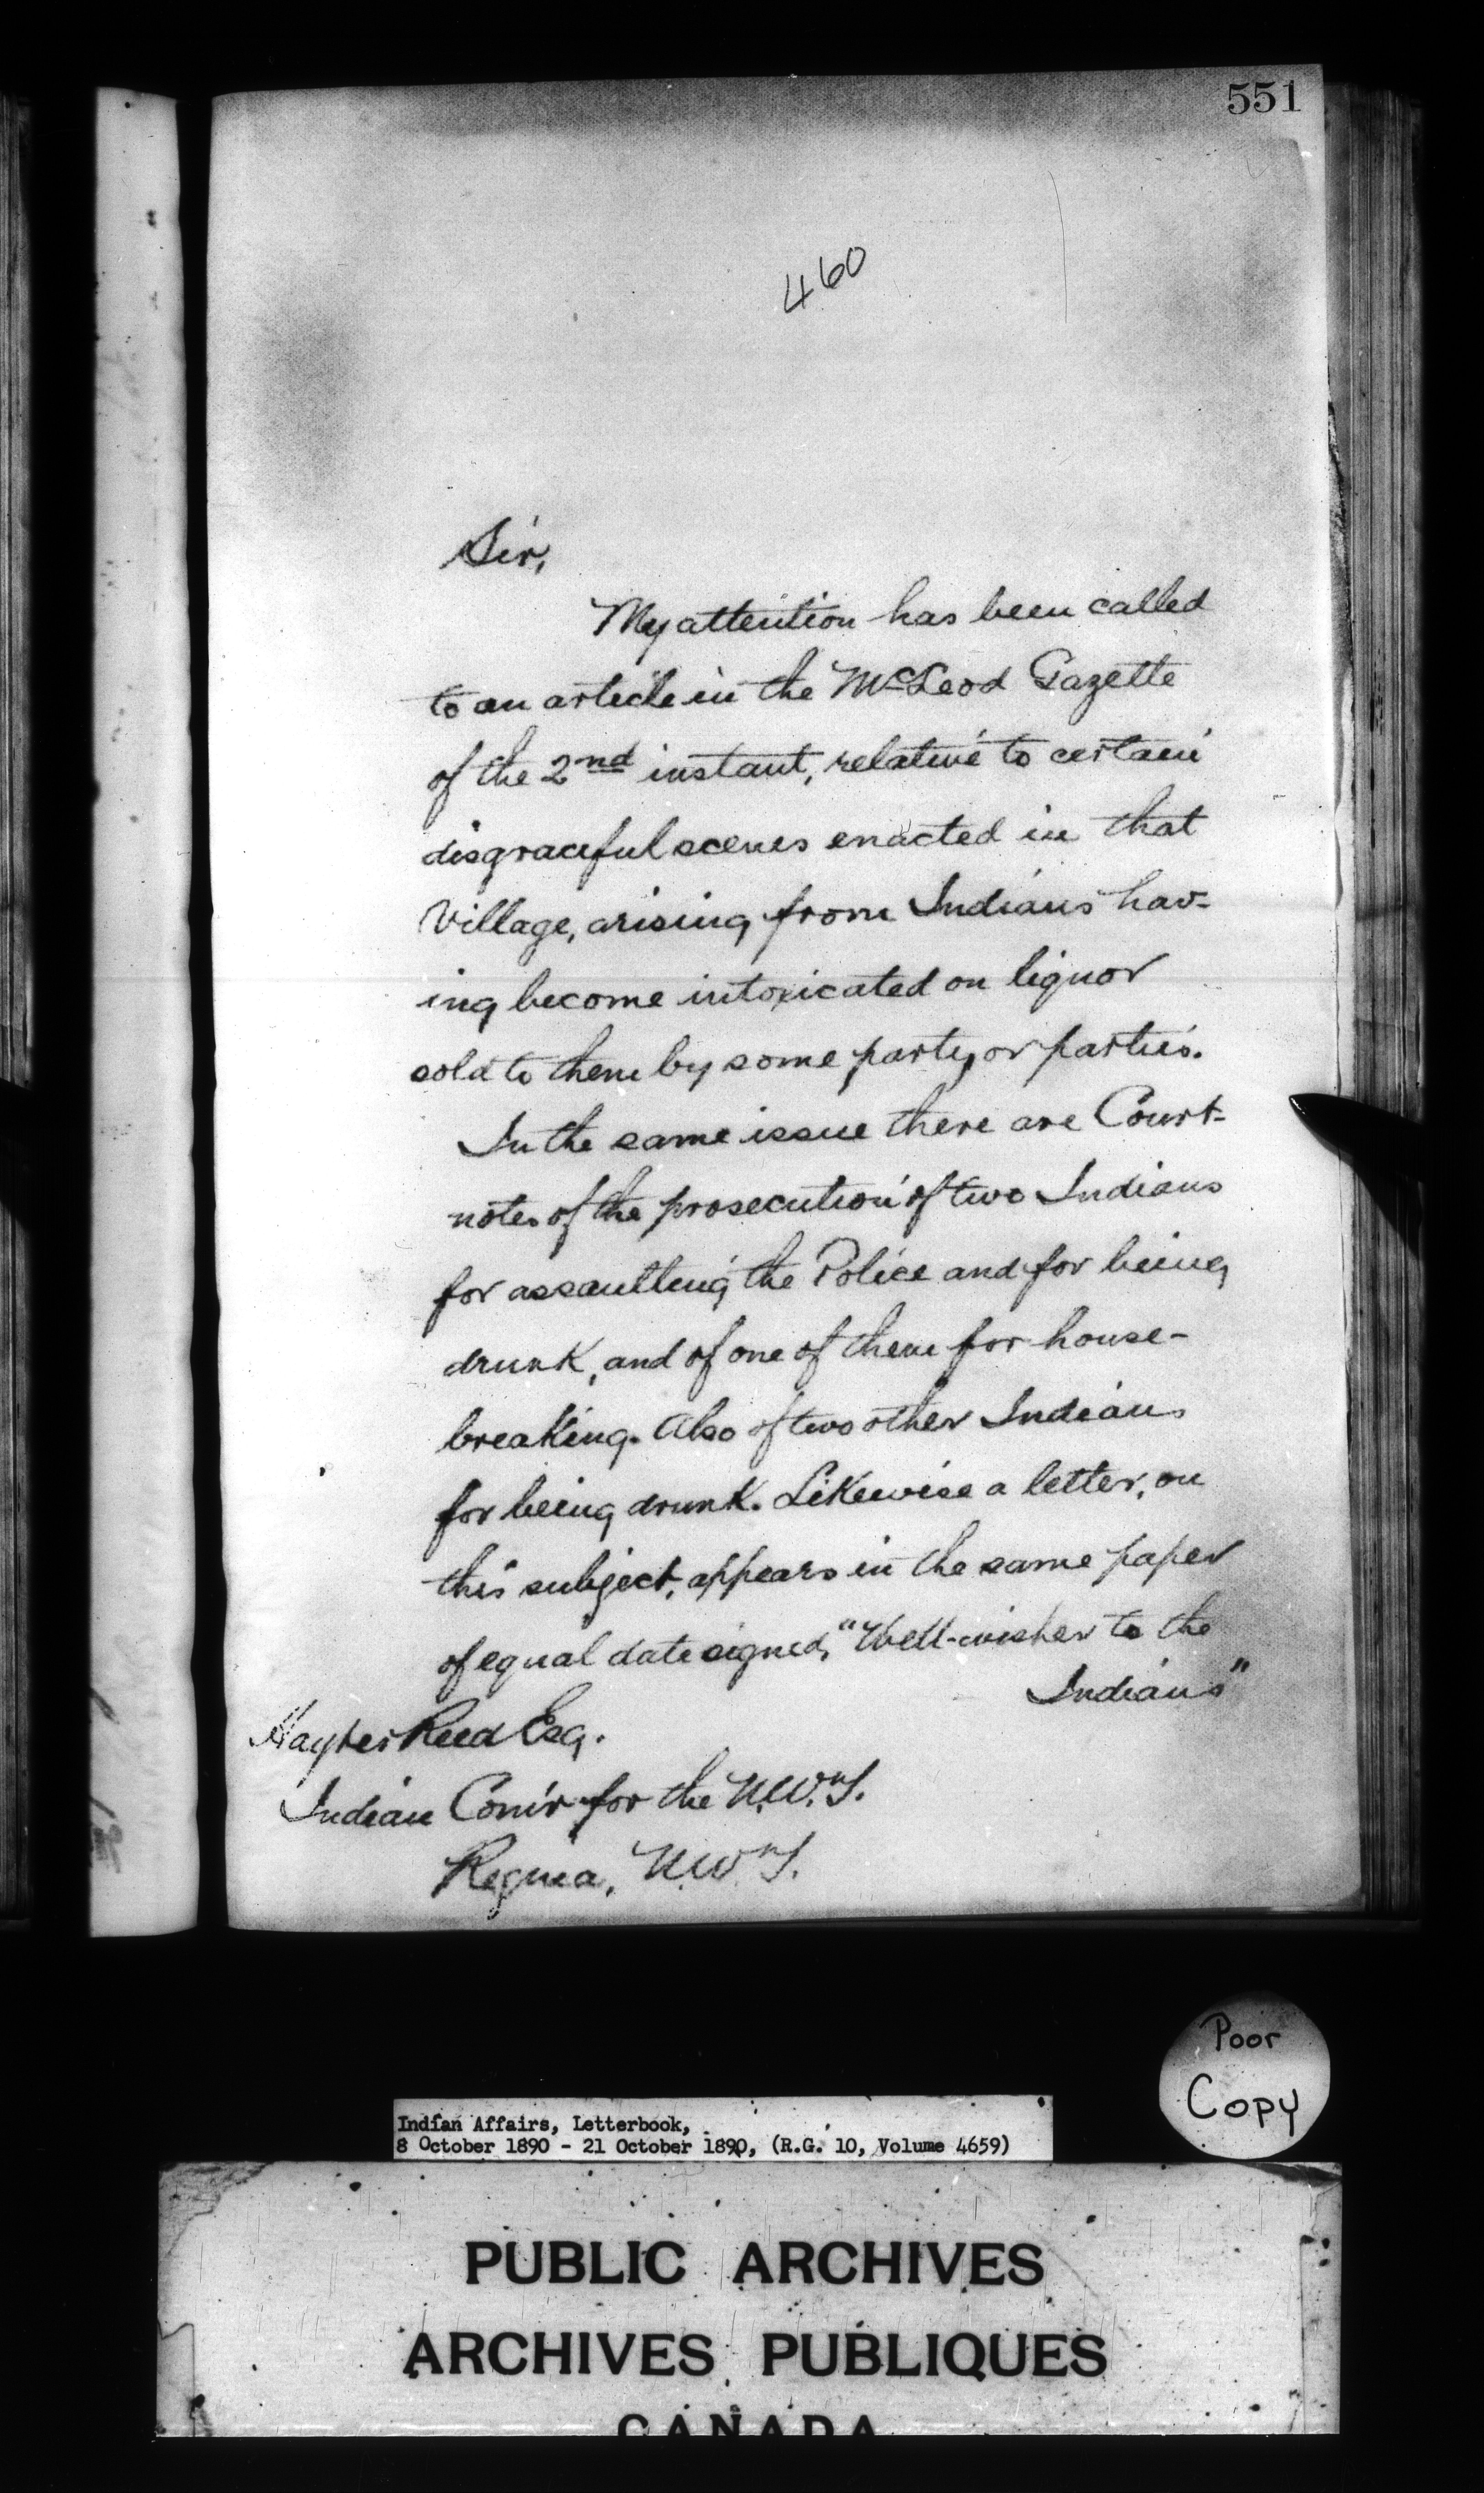 551
460
Sir,
My attention has been called
to an article in the McLeod Gazette
of the 2nd instant, relative to certain
disgraceful scenes enacted in that
Village, arising from Indians hav-
ing become intoxicated on liquor
sold to them by some party or parties.
In the same issue there are Court-
notes of the prosecution of two Indians
for assaulting the Police and for being
drunk, and of one of them for house-
breaking. Also of two other Indians
for being drunk. Likewise a letter, on
this subject, appears in the same paper
of equal date signed, "Well-wisher to the
Indians"
Hayter Reed Esq.
Indian Com'r for the N.W.T.
Regina, N.W.T.
Poor
Copy
Indian Affairs, Letterbook,
8 October 1890 - 21 October 1890, (R.G. 10, Volume 4659)
PUBLIC ARCHIVES
ARCHIVES PUBLIQUES
CANADA